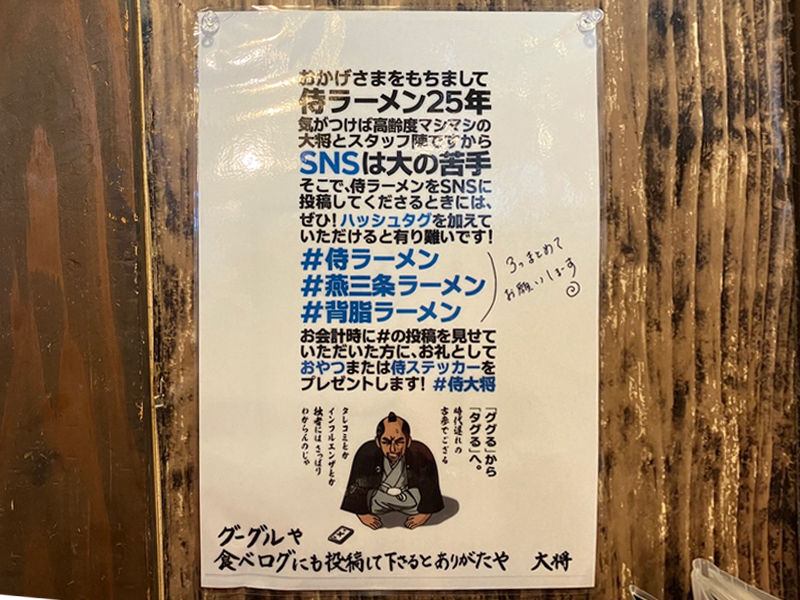 おかげさまをもちまして
侍ラーメン25年
気がつけば高齢度マシマシの
大将とスタッフ陣ですから
SNSは大の苦手
そこで、侍ラーメンをSNSに
投稿してくださるときには、
ぜひ!ハッシュタグを加えて
いただけると有り難いです!
#侍ラーメン
#燕三条ラーメン
#背脂ラーメン
3つまとめて
お願いしまーす
お会計時に#の投稿を見せて
いただいた方に、お礼として
おやつまたは侍ステッカーを
プレゼントします! #侍大将
「ググる」から
「タグる」へ。
時代遅れの
古参でござる
タレコミとか
インフルエンザとか
拙者にはさっぱり
わからんのじゃ
グーグルや
食べログにも投稿して下さるとありがたや 大将